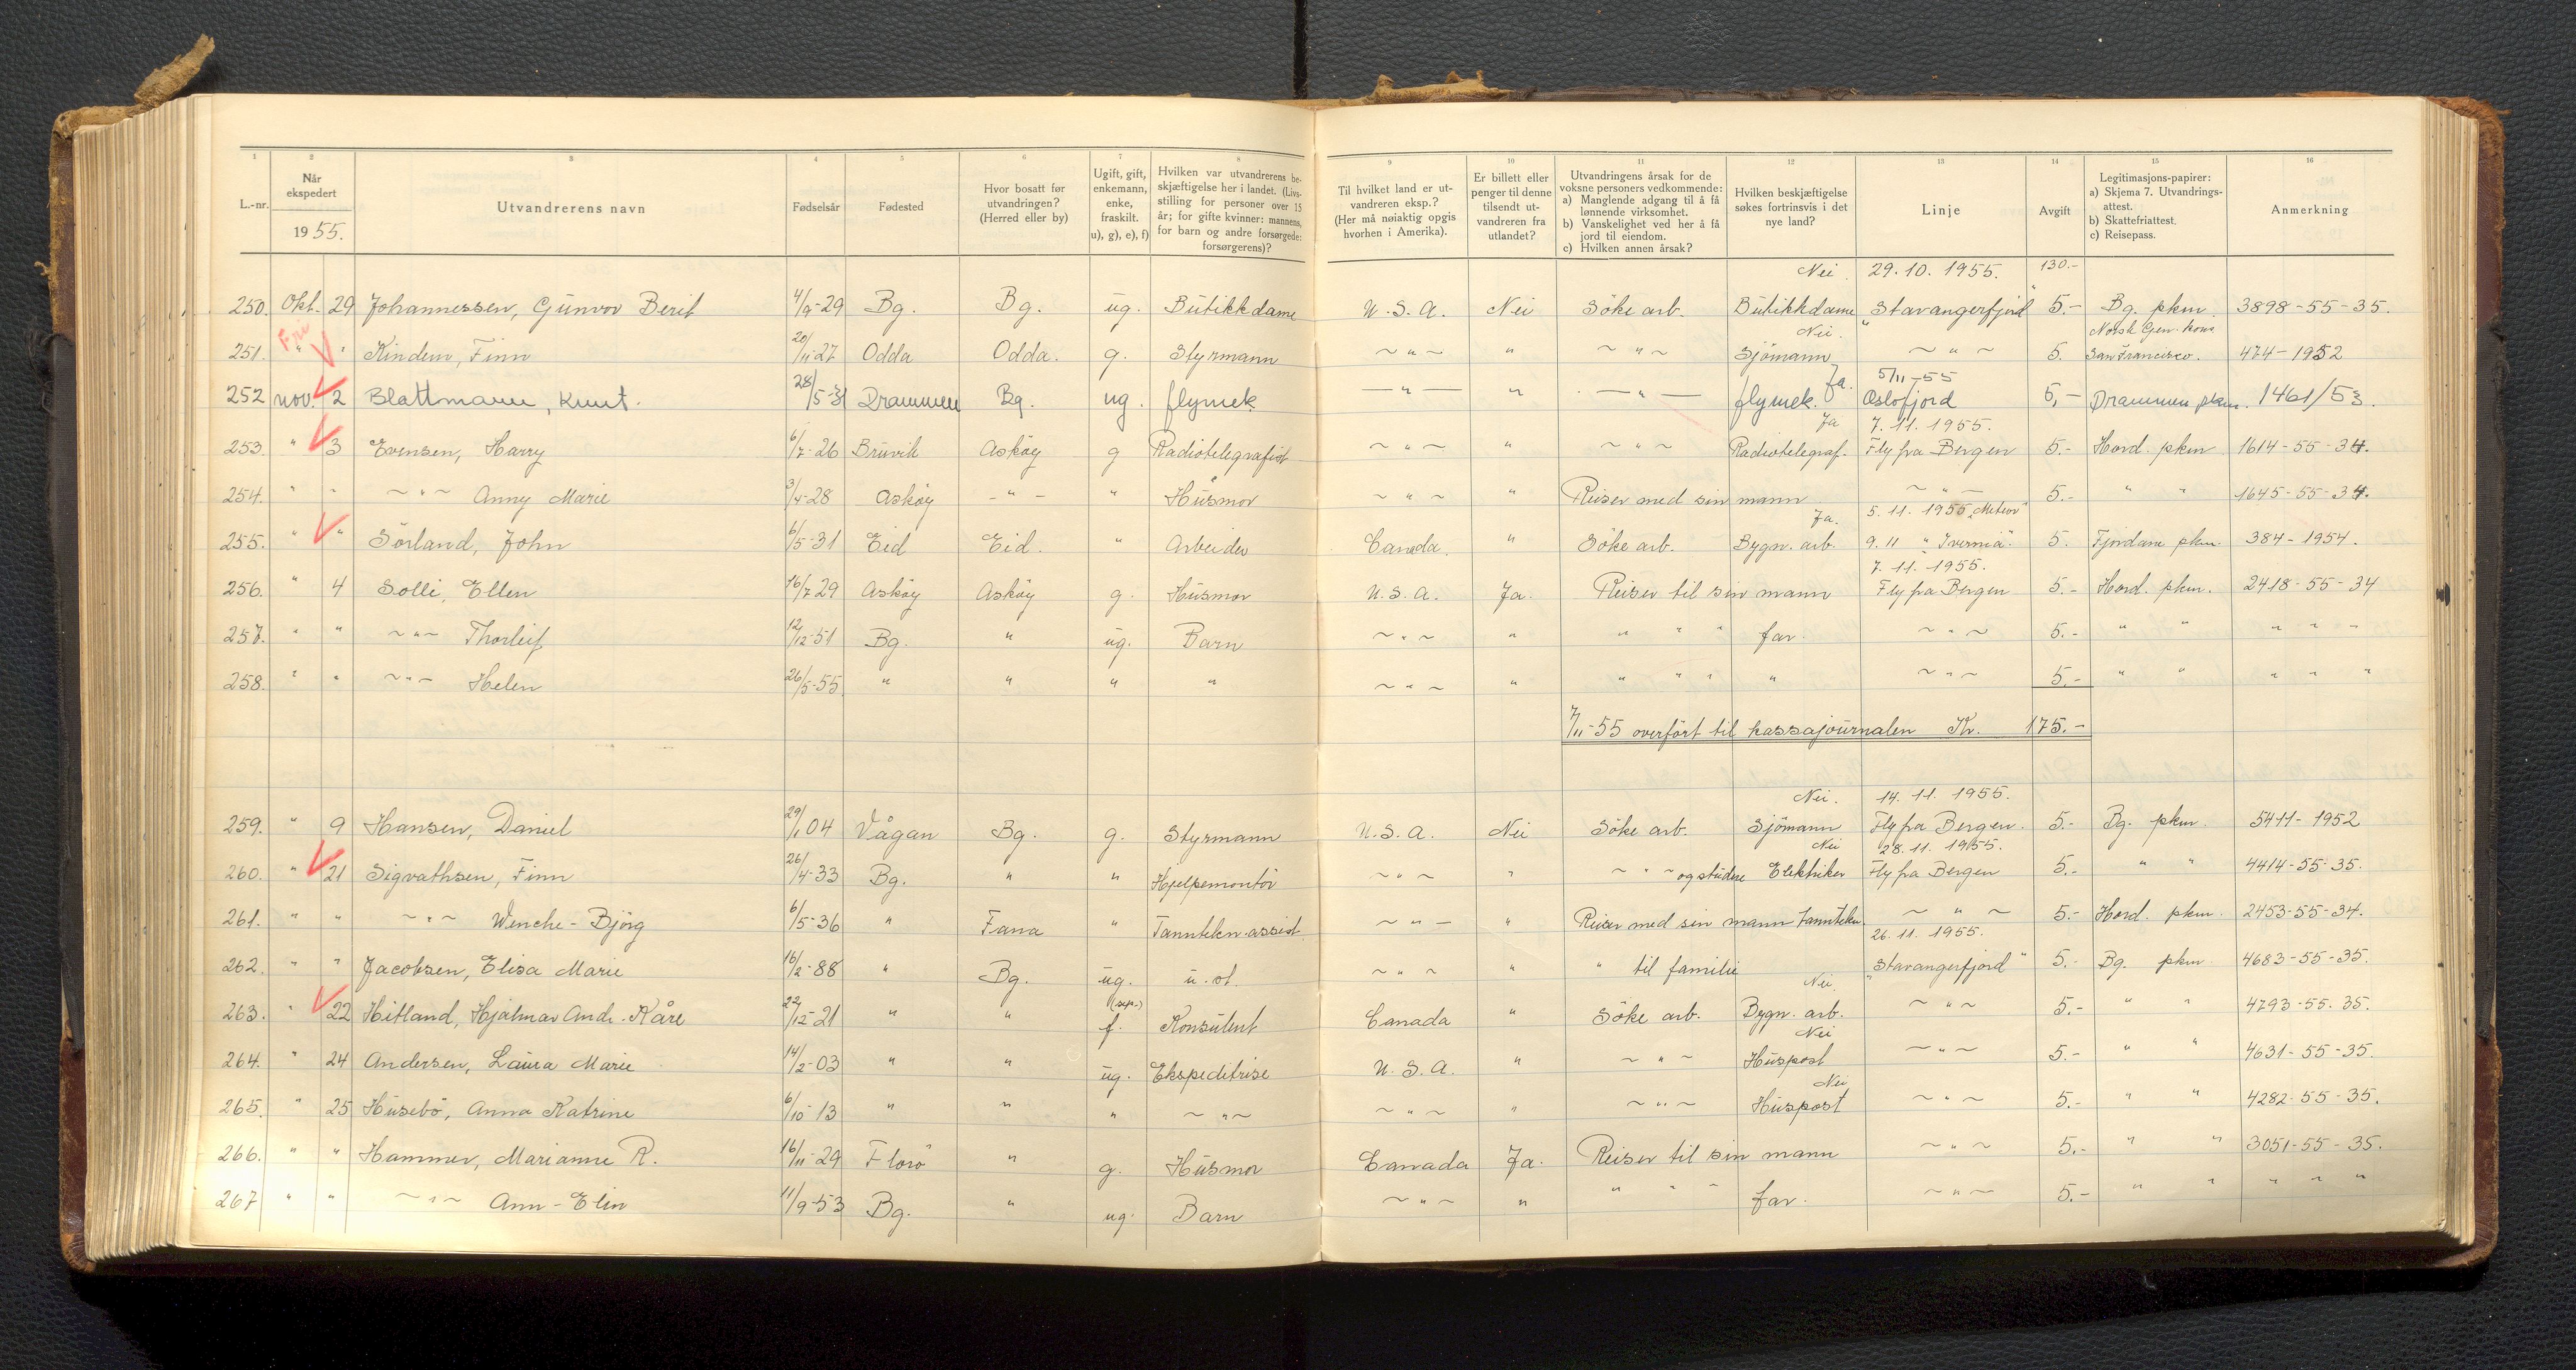 1 2 3 4 5 6 7 8 9 10 11 12 13 14 15 16
L.-nr. Når ekspedert 1955. Utvandrerens navn Fødselsår Fødested Hvor bosatt før utvandringen? (Herred eller by) Ugift, gift, enkemann, enke, fraskilt. u), g), e), f) Hvilken var utvandrerens beskjæftigelse her i landet. (Livsstilling for personer over 15 år; for gifte kvinner: mannens, for barn og andre forsørgede: forsørgerens)? Til hvilket land er utvandreren eksp.? (Her må nøiaktig opgis hvorhen i Amerika). Er billett eller penger til denne tilsendt utvandreren fra utlandet? Utvandringens årsak for de voksne personers vedkommende: a) Manglende adgang til å få lønnende virksomhet. b) Vanskelighet ved her å få jord til eiendom. c) Hvilken annen årsak? Hvilken beskjæftigelse søkes fortrinsvis i det nye land? Linje Avgift Legitimasjons-papirer: a) Skjema 7. Utvandringsattest. b) Skattefriattest. c) Reisepass. Anmerkning
Nei. 29.10.1955. 130.-
250. Okt. 29 Johannessen, Gunvor Berit 4/9-29 Bg. Bg. ug. Butikkdame U.S.A. Nei Söke arb. Butikkdame "Stavangerfjord" 5.- Bg. pkm. 3898-55-35.
Fri Nei. Norsk Gen. kons.
251. " " Kindem, Finn 20/11-27 Odda Odda. g. Styrmann ~"~ " ~"~ Sjömann ~"~ 5. San Francisco. 474-1952
Ja. 5/11-55
252 nov. 2 Blattmann, Knut. 28/5-31 Drammen Bg. ug. flymek. —"— " —"— flymek. Oslofjord 5,- Drammen pkm. 1461/53.
Ja 7.11.1955.
253. " 3 Evensen, Harry 6/7-26 Bruvik Asköy g Radiotelegrafist ~"~ " ~"~ Radiotelegraf. Fly fra Bergen 5.- Hord. pkm. 1614-55-34.
254. " " ~"~ Anny Marie 3/4-28 Asköy -"- " Husmor ~"~ " Reiser med sin mann ~"~ 5.- " " 1645-55-34.
Ja. 5.11.1955 "Meteor"
255. " " Sörland, John 6/5-31 Eid Eid. " Arbeider Canada. " Söke arb. Bygn. arb. 9.11 "Ivernia". 5. Fjordane pkm. 384-1954.
7.11.1955.
256. " 4 Solli, Ellen 16/7 29 Asköy Asköy g. Husmor U.S.A. Ja. Reiser til sin mann Fly fra Bergen 5.- Hord. pkm. 2418-55-34
257. " " ~"~ Thorleif 12/12-51 Bg. " ug. Barn ~"~ " " " " far. ~"~ 5.- " " " " "
258. " " ~"~ Helen 26/5-55 " " " " ~"~ " " " " " ~"~ 5.- " " " " "
7/11-55 overfört til kassajournalen Kr. 175.-
Nei. 14.11.1955.
259. " 9 Hansen, Daniel 29/1 04 Vågan Bg. g. Styrmann U.S.A. Nei Söke arb. Sjömann Fly fra Bergen. 5.- Bg. pkm. 5411-1952
Nei 28.11.1955.
260. " 21 Sigvathsen, Finn 26/4-33 Bg. " " Hjelpemontör ~"~ " ~"~ og studere Elektriker Fly fra Bergen 5.- " " 4414-55-35.
261. " " ~"~ Wenche-Björg 6/5-36 " Fana " Tanntekn. assist. ~"~ " Reiser med sin mann Tanntekn. ~"~ 5.- Hord. pkm. 2453-55-34.
26.11.1955.
262. " " Jacobsen, Elisa Marie 16/2-88 " Bg. ug. u. st. ~"~ " " til familie "Stavangerfjord" 5.- Bg. pkm. 4683-55-35.
(sep.) Nei.
263. " 22 Hitland, Hjalmar Andr. Kåre 22/12-21 " " f. Konsulent Canada " Söke arb. Bygn. arb. ~"~ 5.- " " 4793-55-35.
Nei
264. " 24 Andersen, Laura Marie 14/2-03 " " ug. Ekspeditrise U.S.A. " ~"~ Huspost ~"~ 5.- " " 4631-55-35.
Nei
265. " 25 Husebö, Anna Katrine 6/10-13 " " " ~"~ ~"~ " ~"~ Huspost ~"~ 5.- " " 4282-55-35.
266. " " Hammer, Marianne R. 16/11-29 Florö " g. Husmor Canada Ja. Reiser til sin mann ~"~ 5.- " " 3051-55-35.
267 " " ~"~ Ann-Elin 11/9-53 Bg. " ug. Barn ~"~ " " " " far. ~"~ 5.- " " " " "